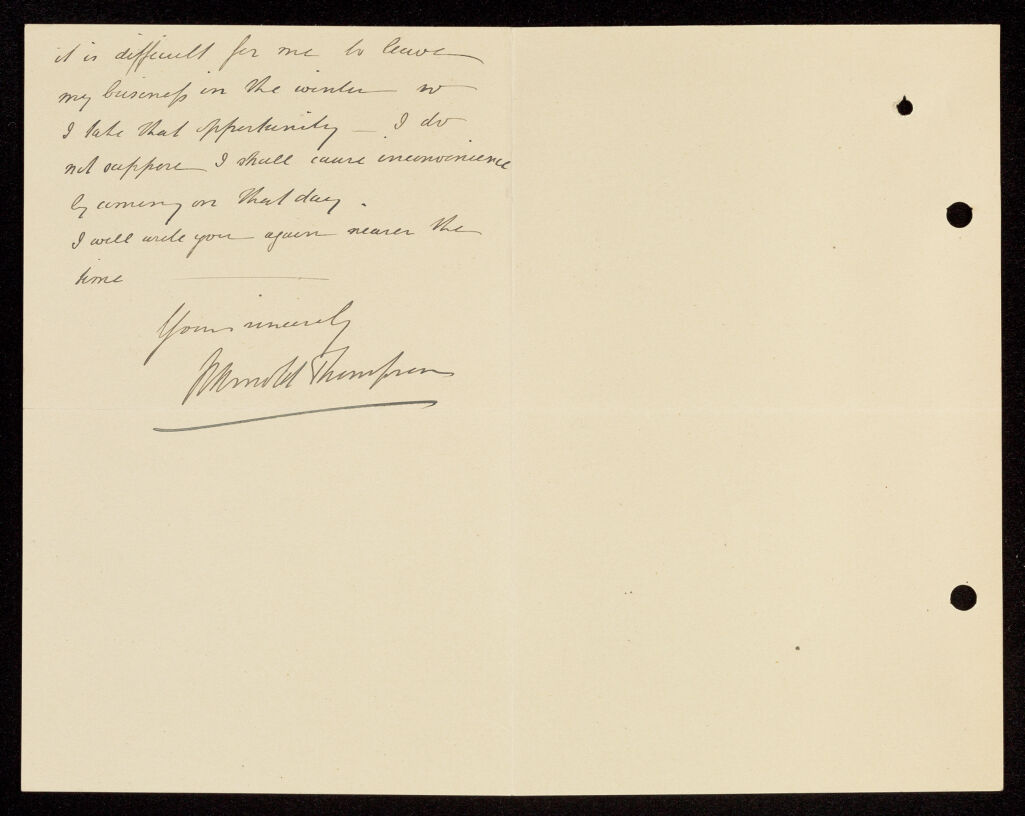 it is difficult for me to leave
my business in the winter so
I take that opportunity — I do
not suppose I shall cause inconvenience
by coming on that day.
I will write you again nearer the
time
Yours sincerely
Arnold Thompson